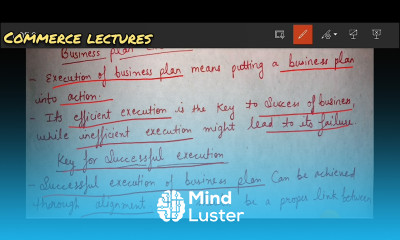 COMMERCE LECTURES
Business plan
- Execution of business plan means putting a business plan
into action.
- Its efficient execution is the key to success of business,
while inefficient execution might lead to its failure.
Key for Successful execution
- Successful execution of business plan can be achieved
through alignment be a proper link between
Mind
Luster